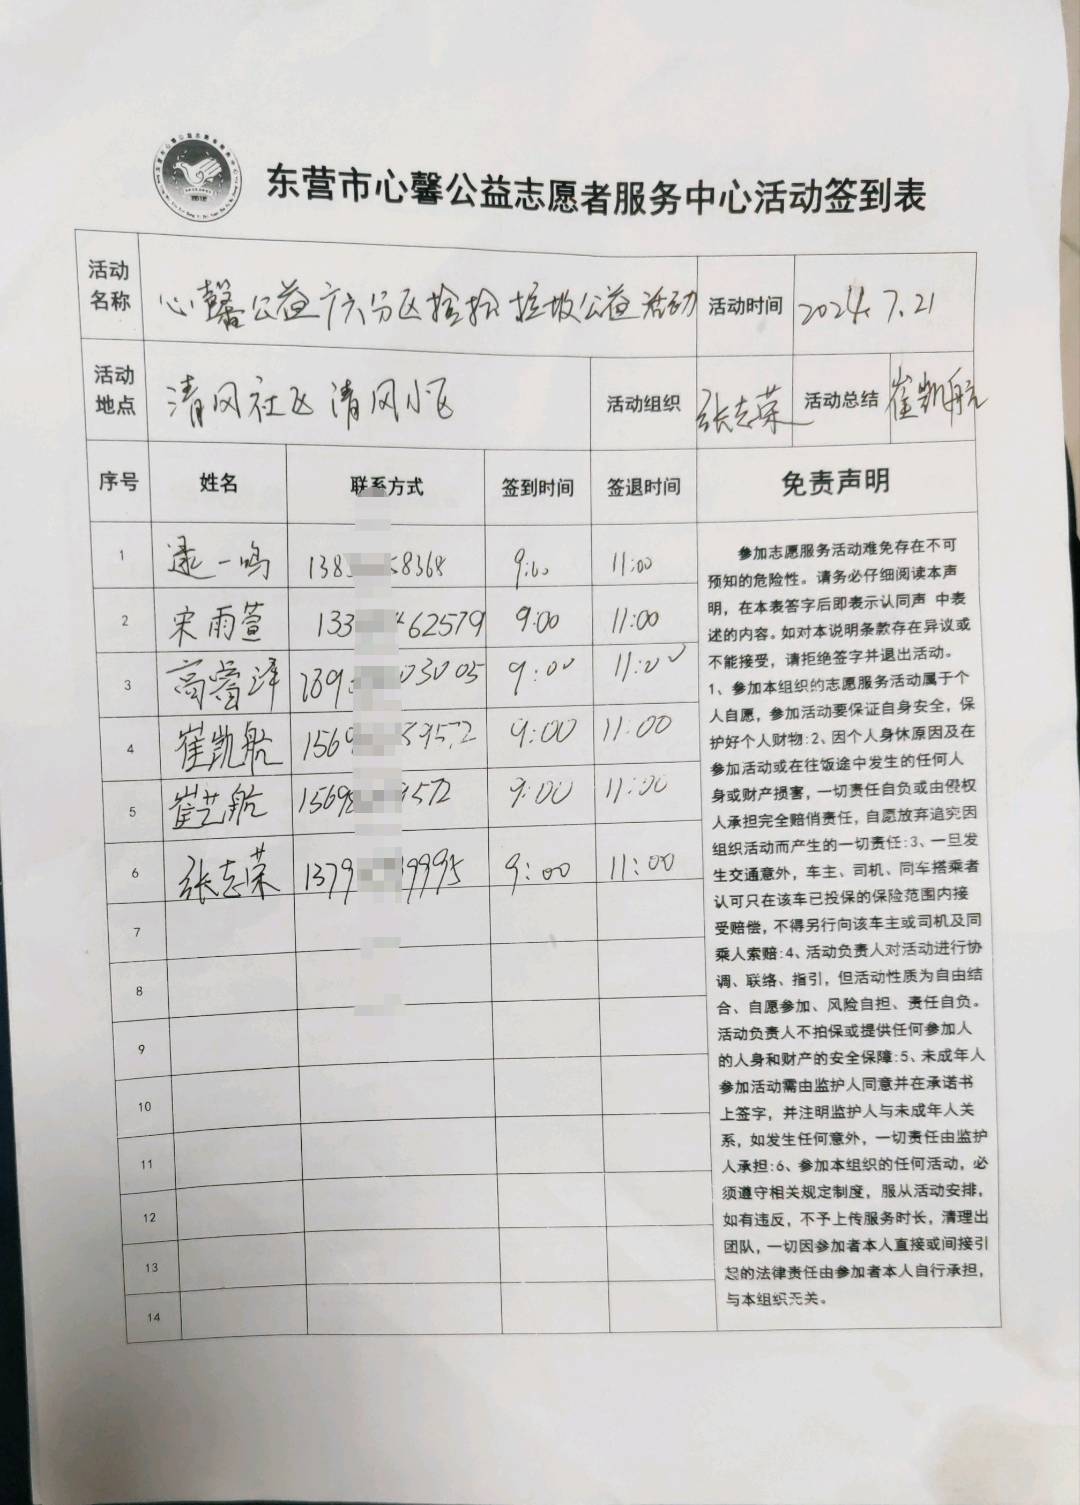 东营市心馨公益志愿者服务中心活动签到表
活动名称 心馨公益广六分区捡拾垃圾公益活动 活动时间 2024.7.21
活动地点 清风社区 清风小区 活动组织 张志荣 活动总结 崔凯航
序号 姓名 联系方式 签到时间 签退时间 免责声明
1 逯一鸣 138 58368 9:00 11:00
2 宋雨萱 133 462579 9:00 11:00
3 高 泽 03005 9:00 11:00
4 崔凯航 1569 9572 9:00 11:00
5 崔艺航 15698 9572 9:00 11:00
6 张志荣 1379 39995 9:00 11:00
7
8
9
10
11
12
13
14
参加志愿服务活动难免存在不可
预知的危险性。请务必仔细阅读本声
明，在本表答字后即表示认同声 中表
述的内容。如对本说明条款存在异议或
不能接受，请拒绝签字并退出活动。
1、参加本组织的志愿服务活动属于个
人自愿，参加活动要保证自身安全，保
护好个人财物:2、因个人身休原因及在
参加活动或在往饭途中发生的任何人
身或财产损害，一切责任自负或由侵权
人承担完全赔俏责任，自愿放弃追究因
组织活动而产生的一切责任:3、一旦发
生交通意外，车主、司机、同车搭乘者
认可只在该车已投保的保险范围内接
受赔偿，不得另行向该车主或司机及同
乘人索赔:4、活动负责人对活动进行协
调、联络、指引，但活动性质为自由结
合、自愿参加、风险自担、责任自负。
活动负责人不拍保或提供任何参加人
的人身和财产的安全保障:5、未成年人
参加活动需由监护人同意并在承诺书
上签字，并注明监护人与未成年人关
系，如发生任何意外，一切责任由监护
人承担:6、参加本组织的任何活动，必
须遵守相关规定制度，服从活动安排，
如有违反，不予上传服务时长，清理出
团队，一切因参加者本人直接或间接引
起的法律责任由参加者本人自行承担，
与本组织无关。